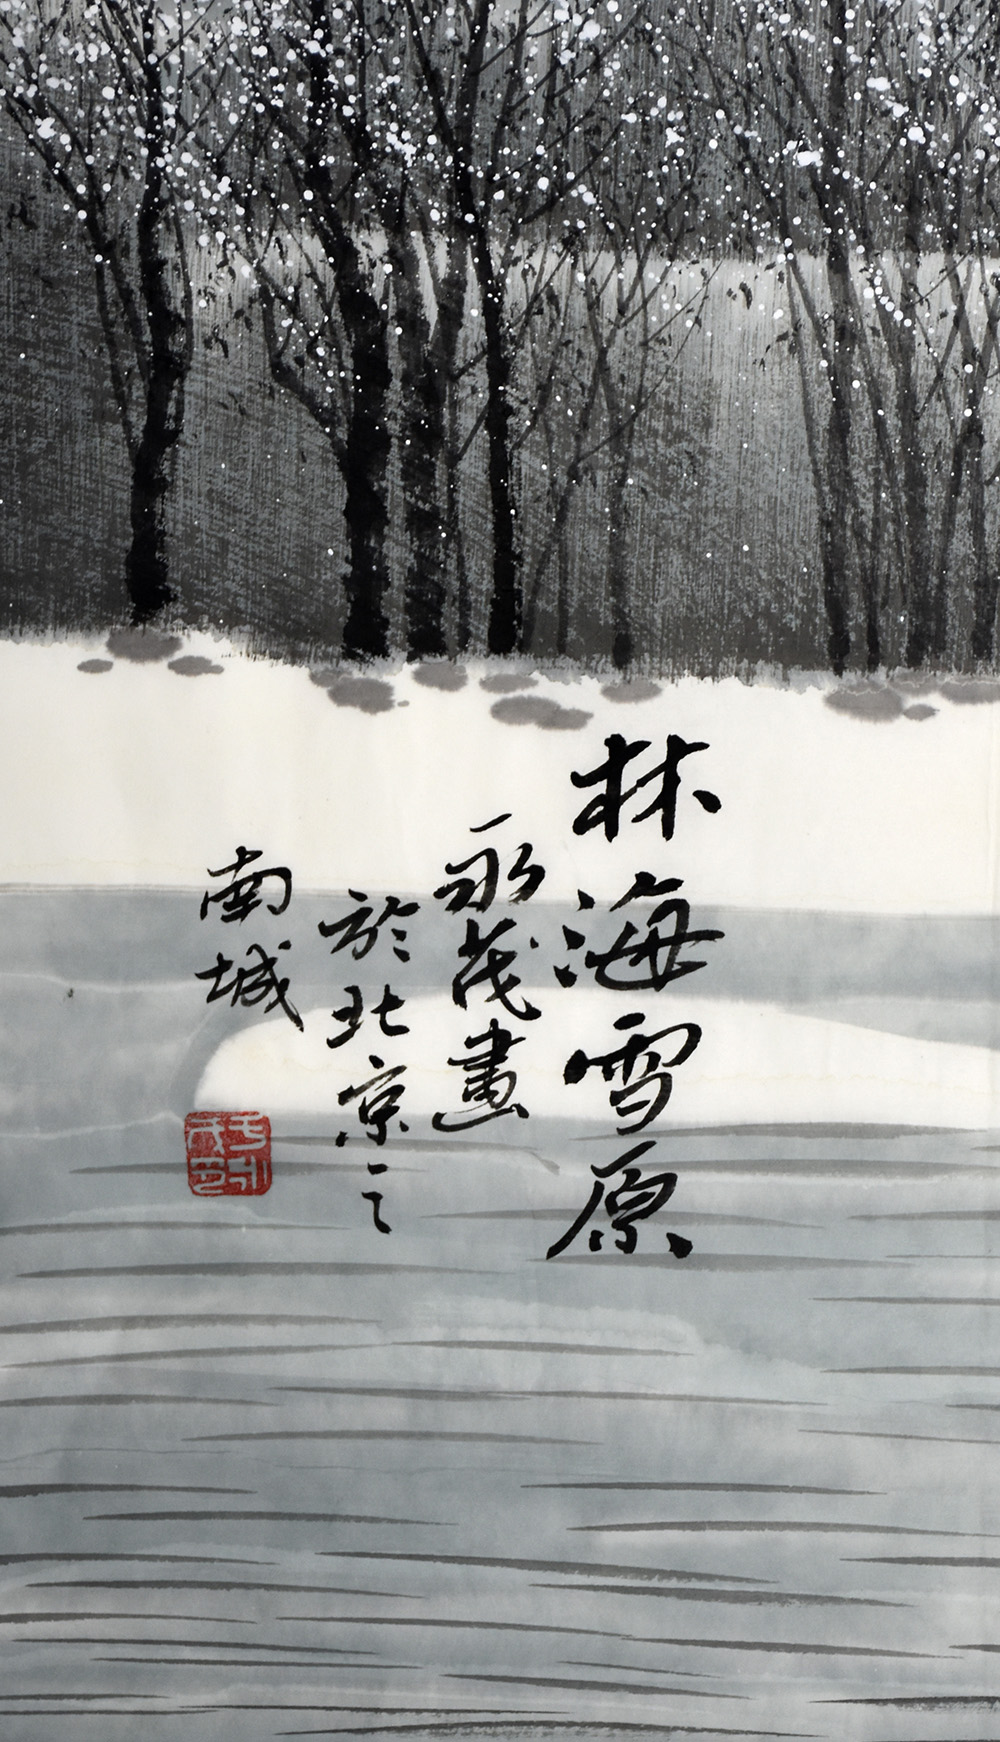 林海雪原
永茂畫
於北京之
南城